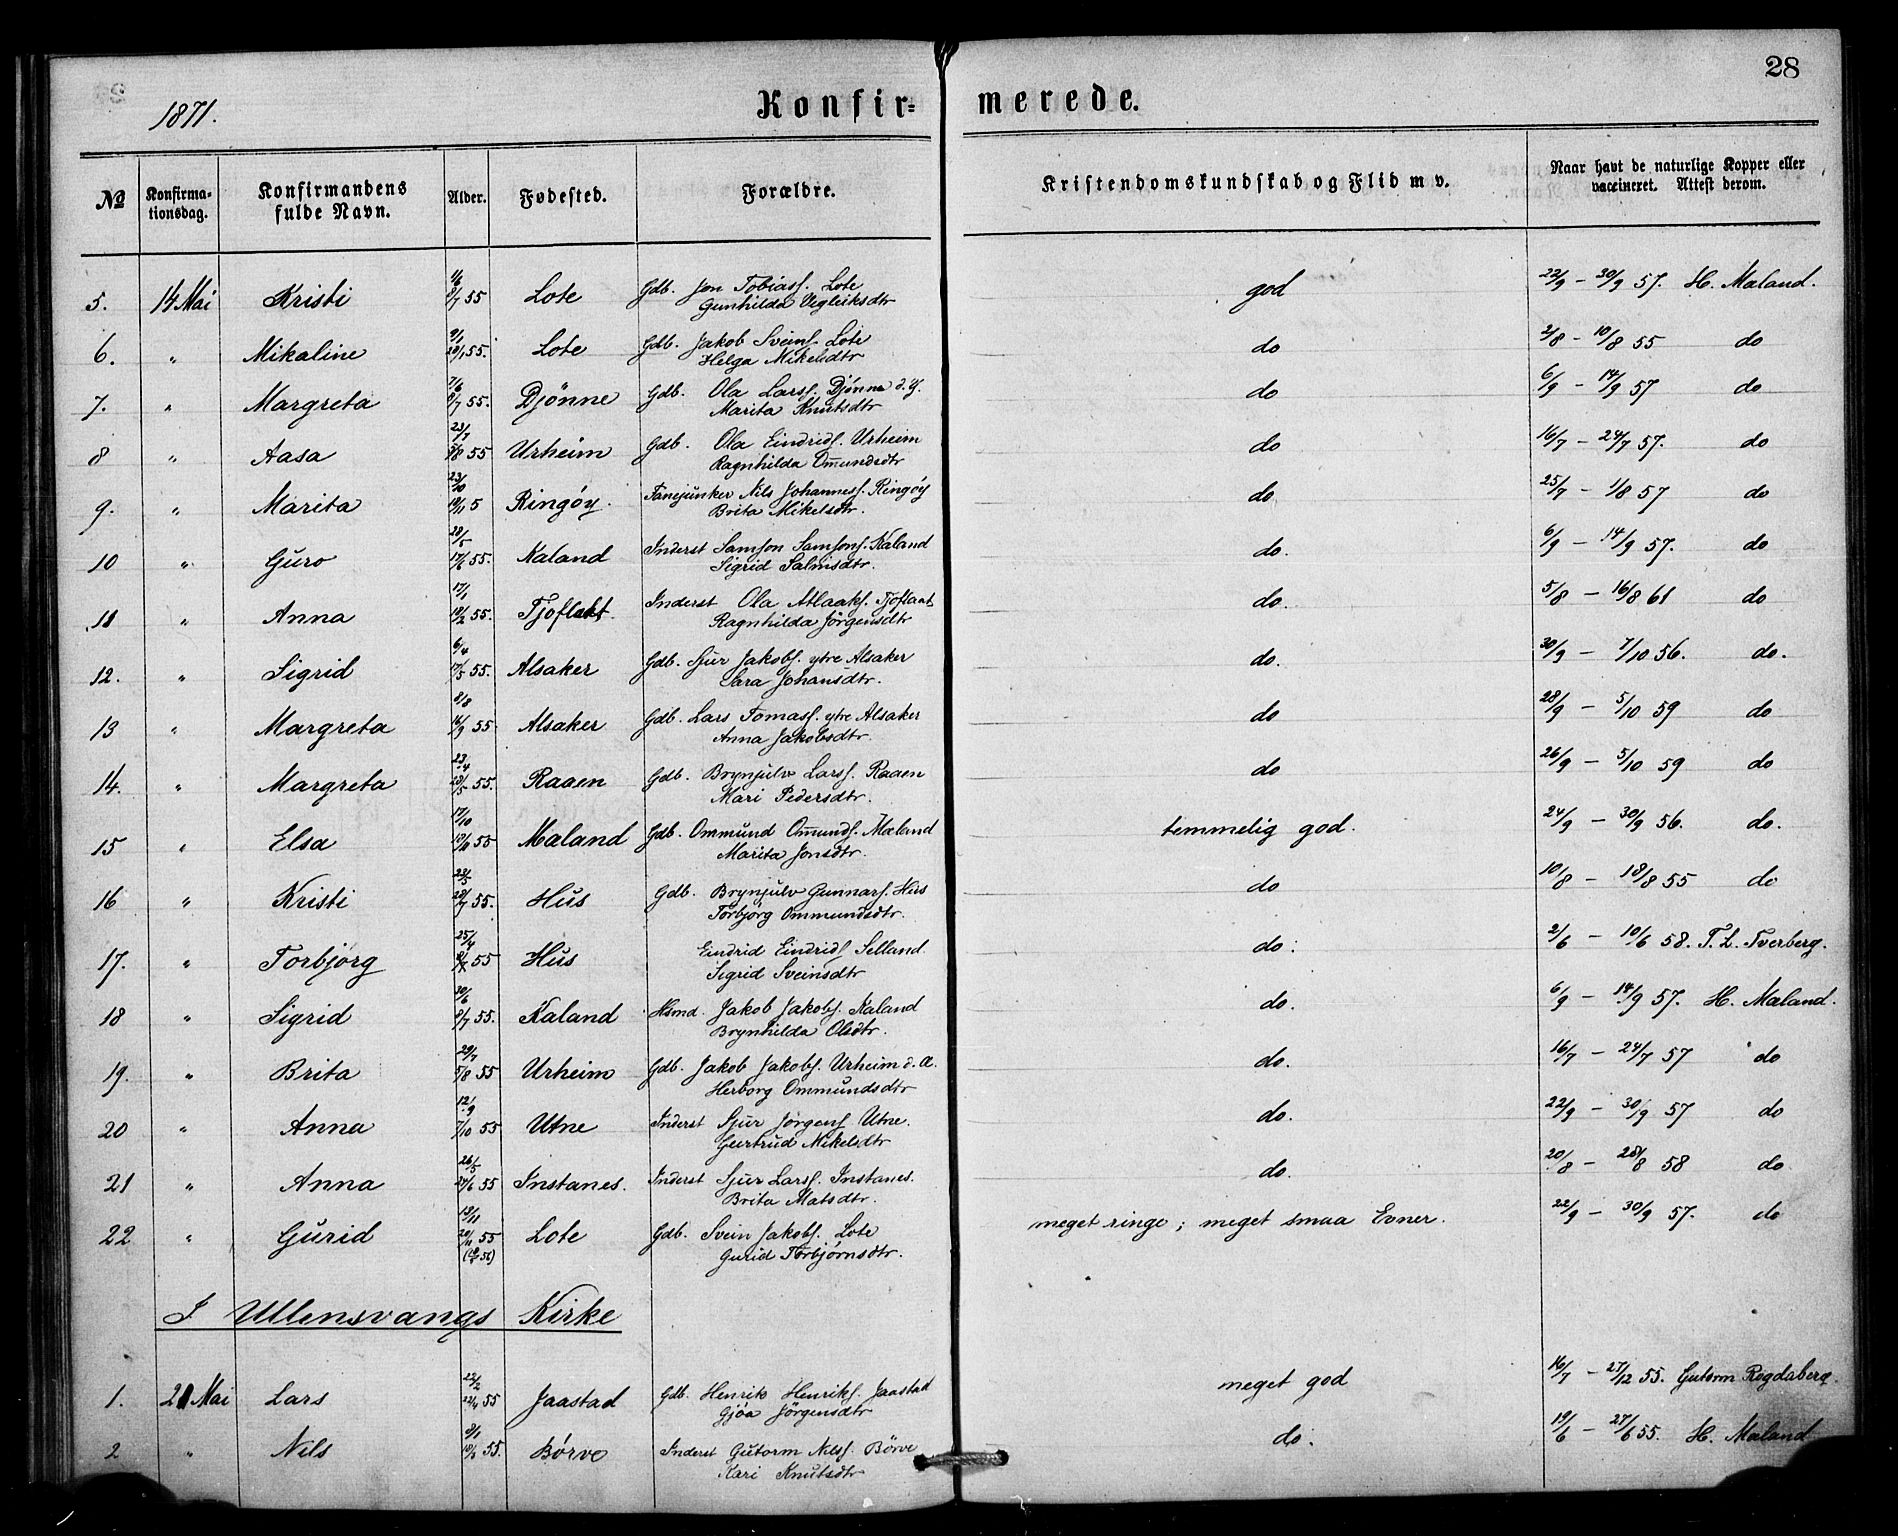 28
1871.
Konfir- merede.
No Konfirma- tionsdag. Konfirmandens fulde Navn. Alder. Fødested. Forældre. Kristendomskundskab og Flid m v. Naar havt de naturlige Kopper eller vaccineret. Attest derom.
5. 14 Mai Kristi 1/6 8/7 55 Lote Gdb. Jon Tobiasf. Lote god 22/9 - 30/9 57. H. Maland.
Gunhilda Vegleiksdtr
6. " Mikaline 9/1 28/1 55. Lote Gdb. Jakob Sveinf. Lote do 2/8 - 10/8 55 do
Helga Mikelsdtr
7. " Margreta 7/6 8/7 55. Djönne Gdb. Ola Larsf. Djönne d. y. do 6/9 - 14/9 57 do
Marita Knutsdtr
8 " Aasa 23/7 5/8 55 Urheim Gdb. Ola Eindridf. Urheim do 16/7 - 24/7 57. do
Ragnhilda Omundsdtr
9. " Marita 23/10 18/11 5 Ringöy. Fanejunker Nils Johannesf. Ringöy do 25/7 - 1/8 57 do
Brita Mikelsdtr.
10 " Guro 28/5 17/6 55. Kaland Inderst Samson Samsonf. Kaland do. 6/9 - 14/9 57. do
Sigrid Salmisdtr.
11 " Anna 17/1 18/2 55. Tjoflaat. Inderst Ola Atlaakf. Tjoflaat do. 5/8 - 16/8 61 do
Ragnhilda Jörgensdtr
12. " Sigrid 6/4 17/5 55. Alsaker Gdb. Sjur Jakobf. ytre Alsaker do. 30/9 - 7/10 56. do.
Sara Johansdtr.
13 " Margreta 8/8 16/9 55 Alsaker Gdb. Lars Tomasf. ytre Alsaker do 28/9 - 5/10 59 do
Anna Jakobsdtr.
14. " Margreta 23/4 28/5 55. Raaen Gdb. Brynjulv Larsf. Raaen do 26/9 - 5/10 59 do
Mari Pedersdtr.
15 " Elsa 17/10 55 Maland Gdb. Ommund Omundf. Maland temmelig god. 24/9 - 30/9 56. do.
Marita Jonsdtr.
16 " Kristi 55. Hus Gdb. Brynjulv Gunnarf. Hus do 10/8 - 18/8 55 do
Torbjörg Ommundsdtr.
17. " Torbjörg 25/4 55 Hus Eindrid Eindridf. Selland. do. 2/6 - 10/6 58. T. L. Tverberg.
Sigrid Sveinsdtr
18 " Sigrid 30/6 8/7 55. Kaland Hsmd. Jakob Jakobf. Kaland do. 6/9 - 14/9 57. H. Maland.
Brynhilda Olsdtr.
19. " Brita 29/7 5/8 55 Urheim Gdb. Jakob Jakobf. Urheim d. æ. do. 16/7 - 24/7 57 do
Herborg Ommundsdtr
20 " Anna 12/9 7/10 55 Utne Inderst Sjur Jörgenf. Utne. do. 22/9 - 30/9 57 do
Gertrud Mikelsdtr
21 " Anna 26/5 24/6 55 Instanes. Inderst Sjur Larsf. Instanes. do. 20/8 - 28/8 58 do
Brita Matsdtr.
22 " Gurid 13/11 20/11 55 Lote Gdb. Svein Jakobf. Lote meget ringe; meget smaa Evner. 22/9 - 30/9 57. do
Gurid Torbjörnsdtr.
I Ullensvangs Kirke
1. 21 Mai Lars 22/2 55 Jaastad Gdb. Henrik Henrikf. Jaastad meget god 16/7 - 27/12 55. Gutorm Rogdaberg.
Gjöa Jörgensdtr
2 " Nils 55. Börve Inderst Gutorm Nilsf. Börve do. 19/6 - 27/6 55. H. Maland
Kari Knutsdtr